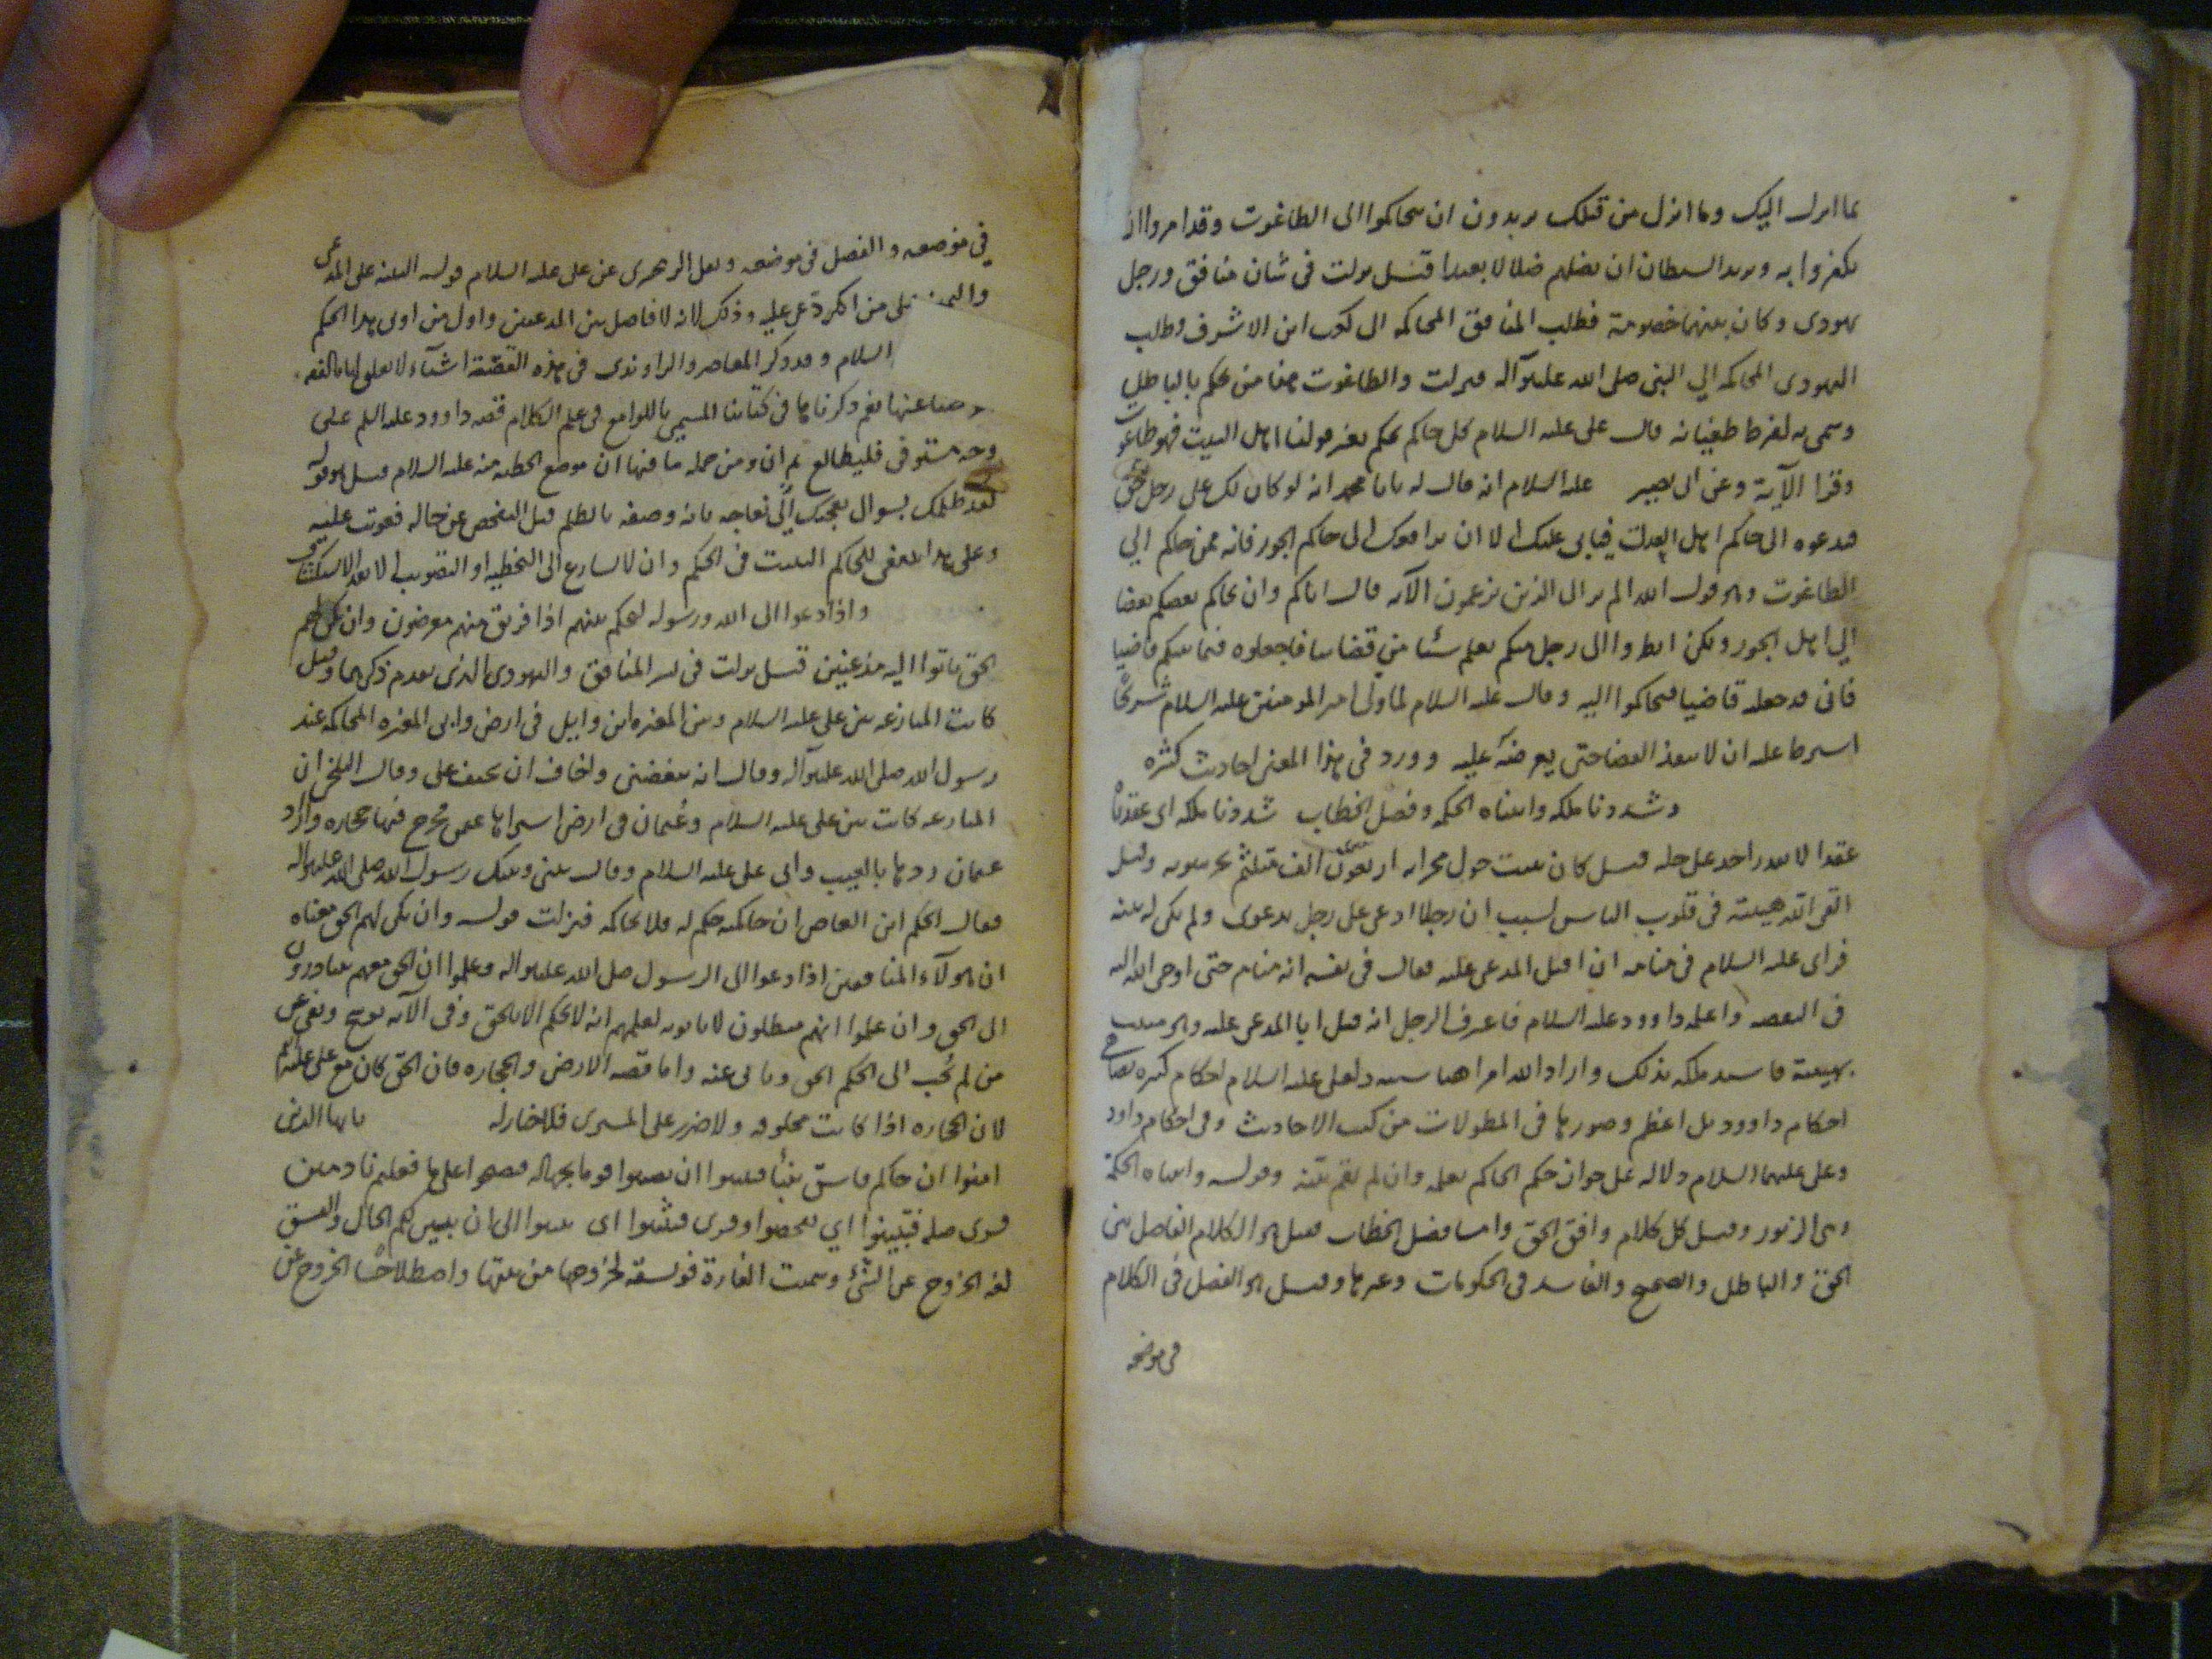 بما انزل اليك وما انزل من قبلك يريدون ان يتحاكموا الى الطاغوت وقد امروا ان
يكفروا به ويريد الشيطان ان يضلهم ضلالا بعيدا قيل نزلت في شان منافق ورجل
يهودى وكان بينهما خصومة فطلب المنافق المحاكمه الى كعب ابن الاشرف وطلب
اليهودى المحاكمه الي النبى صلى الله عليه وآله فنزلت والطاغوت هنا من يحكم بالباطل
وسمى به لفرط طغيانه قال على عليه السلام كل حاكم يحكم بغير قولنا اهل البيت فهو طاغوت
وقرا الآية وعن ابى بصير عليه السلام انه قال له يابا محمد انه لو كان لك على رجل حق
فدعوه الى حاكم اهل العدل فيابى عليك الا ان يرافعوك الى حاكم الجور فانه ممن حاكم الي
الطاغوت وهو قول الله الم تر الى الذين يزعمون الآيه قال اياكم وان يحاكم بعضكم بعضا
الي اهل الجور ولكن انظروا الى رجل منكم يعلم شيئا من قضايانا فاجعلوه فيما بينكم قاضيا
فانى قد جعلته قاضيا فتحاكموا اليه وقال عليه السلام لما ولى امير المومنين عليه السلام شريحًا
اشترط عليه ان لا ينفذ القضا حتى يعرضه عليه وورد في هذا المعنى احاديث كثيره
وشددنا ملكه واتيناه الحكمه وفصل الخطاب شددنا ملكه اى عقدناه
عقدا لا يقدر احد على حله قيل كان يبيت حول محرابه اربعون الف يحرسونه وقيل
القى الله هيبته في قلوب الناس لسبب ان رجلا ادعى على رجل بدعوى ولم يكن له بينه
فراى عليه السلام في منامه ان اقتل المدعى عليه فقال في نفسه انه منام حتى اوحى الله اليه
في اليقضه واعلمه داوود عليه السلام فاعترف الرجل انه قتل ابا المدعى عليه وهو سبب
هيبته فاشتد ملكه بذلك واراد الله امرا هيا سببه ولعلى عليه السلام احكام كثيره تضاهى
احكام داوود بل اعظم وصورها في المطولات من كتب الاحاديث وفى احكام داود
وعلى عليهما السلام دلاله على جواز حكم الحاكم بعلمه وان لم تقم بينه وقوله واتيناه الحكمة
هى الزبور وقيل كل كلام وافق الحق واما فصل الخطاب فقيل هو الكلام الفاصل بين
الحق والباطل والصحيح والفاسد في الحكومات وغيرها وقيل هو الفصل في الكلام
في موضعه
في موضعه و الفصل في موضعه ونقل الزهرى عن على عليه السلام قوله البينه على المدعى
واليمين على من انكر دعى عليه وذلك لانه لا فاصل بين المدعيين واول من اوتى بهذا الحكم
السلام وقد ذكر المعاصر والراوندى في هذه القصة اشيآء لا تعلق لها بالفقه
عنها نعم ذكرناها في كتابنا المسمى باللوامع في علم الكلام قصه داوود عليه السلم على
وجه مستوفى فليطالع ثم ان ومن جمله ما فيها ان موضع الخطيه منه عليه السلام قيل هو قوله
لقد ظلمك بسوال نعجتك الى نعاجه بانه وصفه بالظلم قبل التفحص عن حاله فعوتب عليه
وعلى هذا ينبغى للحاكم التثبت في الحكم وان لا يسارع الى التخطيه او التصويب الا بعد الاستكشاف
واذا دعوا الى الله ورسوله ليحكم بينهم اذا فريق منهم معرضون وان يكن لهم
الحق ياتوا اليه مذعنين قيل نزلت في بشر المنافق واليهودى الذى تقدم ذكرهما وقيل
كانت المنازعه بين على عليه السلام وبين المغيره ابن وايل في ارض وابى المغيره المحاكمه عند
رسول الله صلى الله عليه وآله وقال انه يبغضنى واخاف ان يحيف على وقال البلخى ان
المنازعه كانت بين على عليه السلام وعثمان في ارض اشتراها عثمن فخرج فيها حجاره واراد
عثمان ردها بالعيب وابى على عليه السلام وقال بينى وبينك رسول الله صلى الله عليه واله
فقال الحكم ابن العاص ان حاكمته حكم له فلا تحاكمه فنزلت قوله وان يكن لهم الحق معناه
ان هولآء المنافقين اذا دعوا الى الرسول صلى الله عليه واله وعلموا ان الحق معهم يبادرون
الى الحق وان علموا انهم مبطلون لا ياتونه لعلمهم انه لا يحكم الا بالحق وفى الآيه توبيخ وتقريع
من لم يُجب الى الحكم الحق ويابى عنه واما قصه الارض والحجاره فان الحق كان مع على عليه السلم
لان الحجاره اذا كانت مخلوقه ولا ضرر على المشترى فلا خيار له يا ايها الذين
امنوا ان جاكم فاسق بنبأ فتبينوا ان تصيبوا قوما بجهاله فتصبحوا على ما فعلتم نادمين
قوى صله فتبينوا اي تفحصوا وقرى فتثبتوا اى تثبتوا الى ان يتبين لكم الحال والفسق
لغه الخروج عن الشئ وسميت الفارة فويسقه لخروجها من بيتها واصطلاحًا الخروج عن